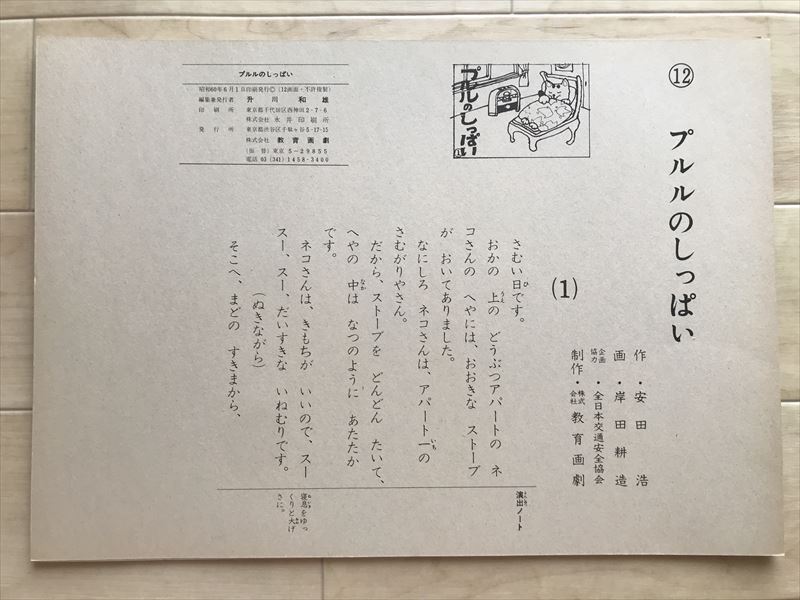 ⑫
プルルのしっぱい
作・安田 浩
画・岸田耕造
企画協力・全日本交通安全協会
制作・株式会社 教育画劇
プルルのしっぱい
プルルのしっぱい
昭和60年6月1日印刷発行©(12画面・不許複製)
編集兼発行者 升川和雄
印刷所 東京都千代田区西神田2-7-6
株式会社 永井印刷所
発行所 東京都渋谷区千駄ヶ谷5-17-15
株式会社 教育画劇
(振替)東京5-29855
電話03(341)1458・3400
(1)
さむい日です。
おかの 上の どうぶつアパートの ネ
コさんの へやには、おおきな ストーブ
が おいてありました。
なにしろ ネコさんは、アパート一の
さむがりやさん。
だから、ストーブを どんどん たいて、
へやの 中は なつのように あたたか
です。
ネコさんは、きもちが いいので、スー
スー、スー、だいすきな いねむりです。
(ぬきながら)
そこへ、まどの すきまから、
演出ノート
寝息をゆっ
くりと大げ
さに。